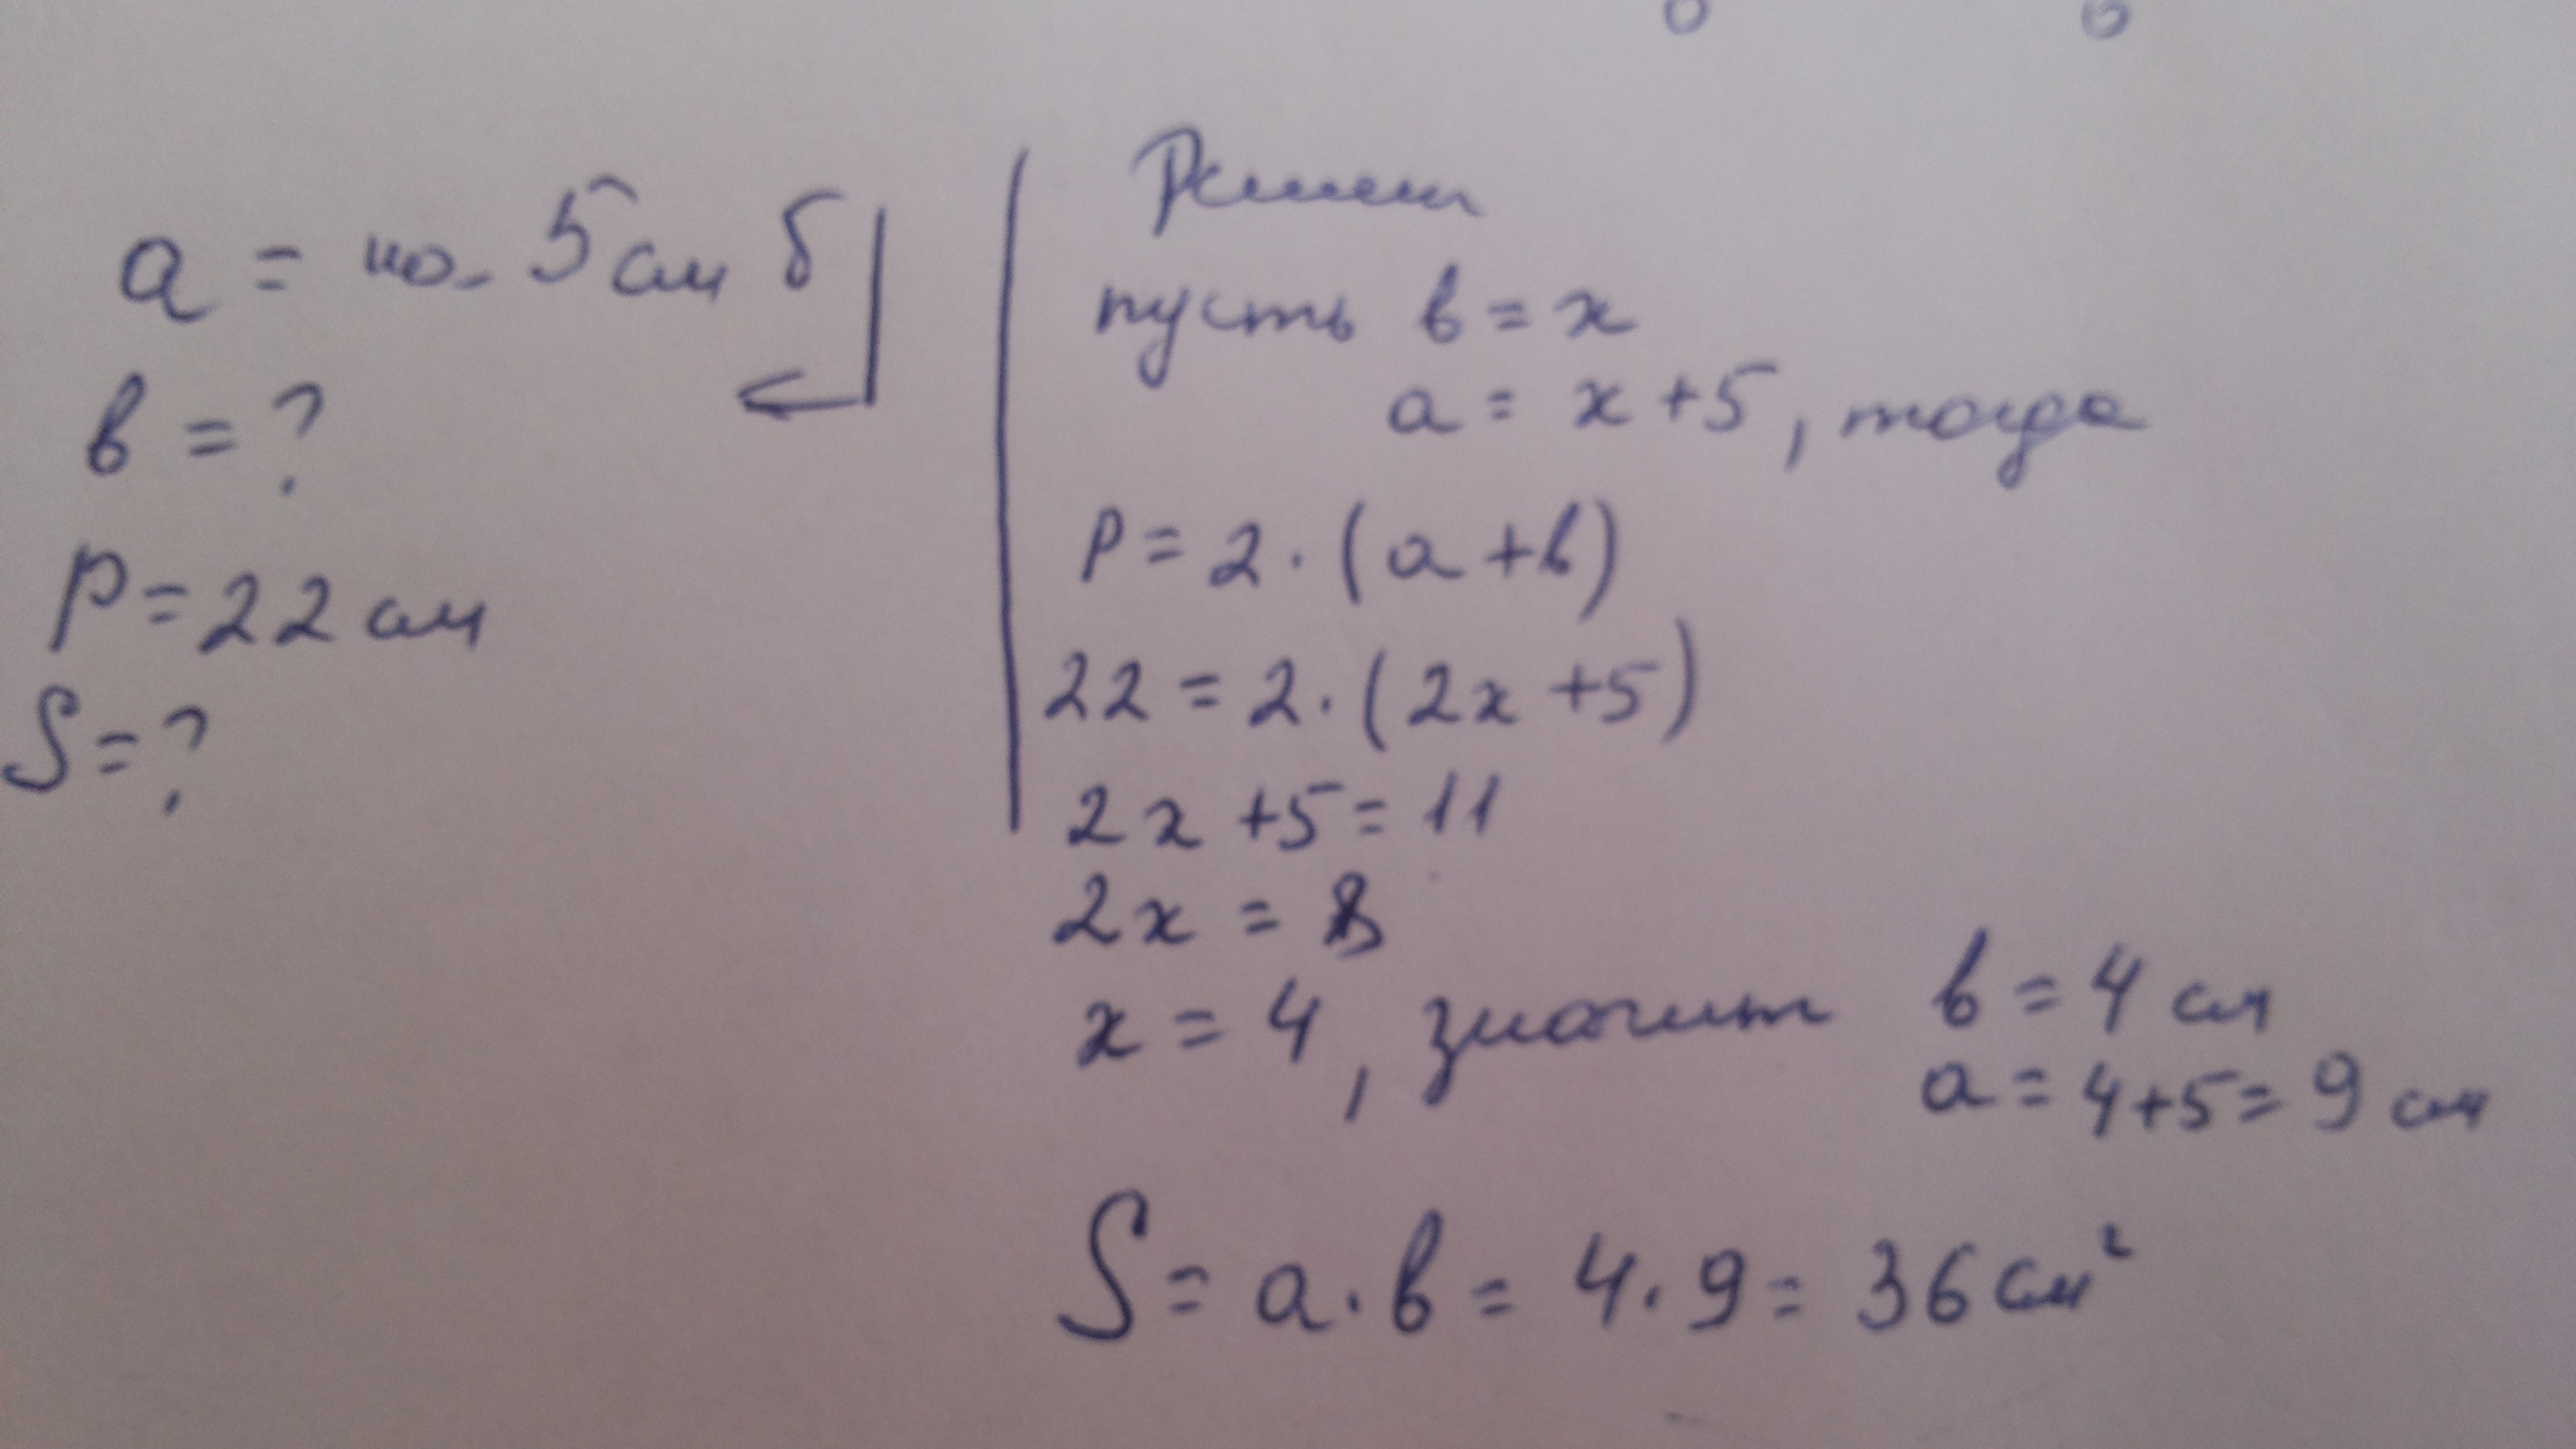 a = на 5 см б
в = ?
P = 22 см
S = ?
Решен
пусть в = x
a = x + 5, тогда
P = 2 · (a + в)
22 = 2 · (2x + 5)
2x + 5 = 11
2x = 8
x = 4, значит в = 4 см
a = 4 + 5 = 9 см
S = a · в = 4 · 9 = 36 см²